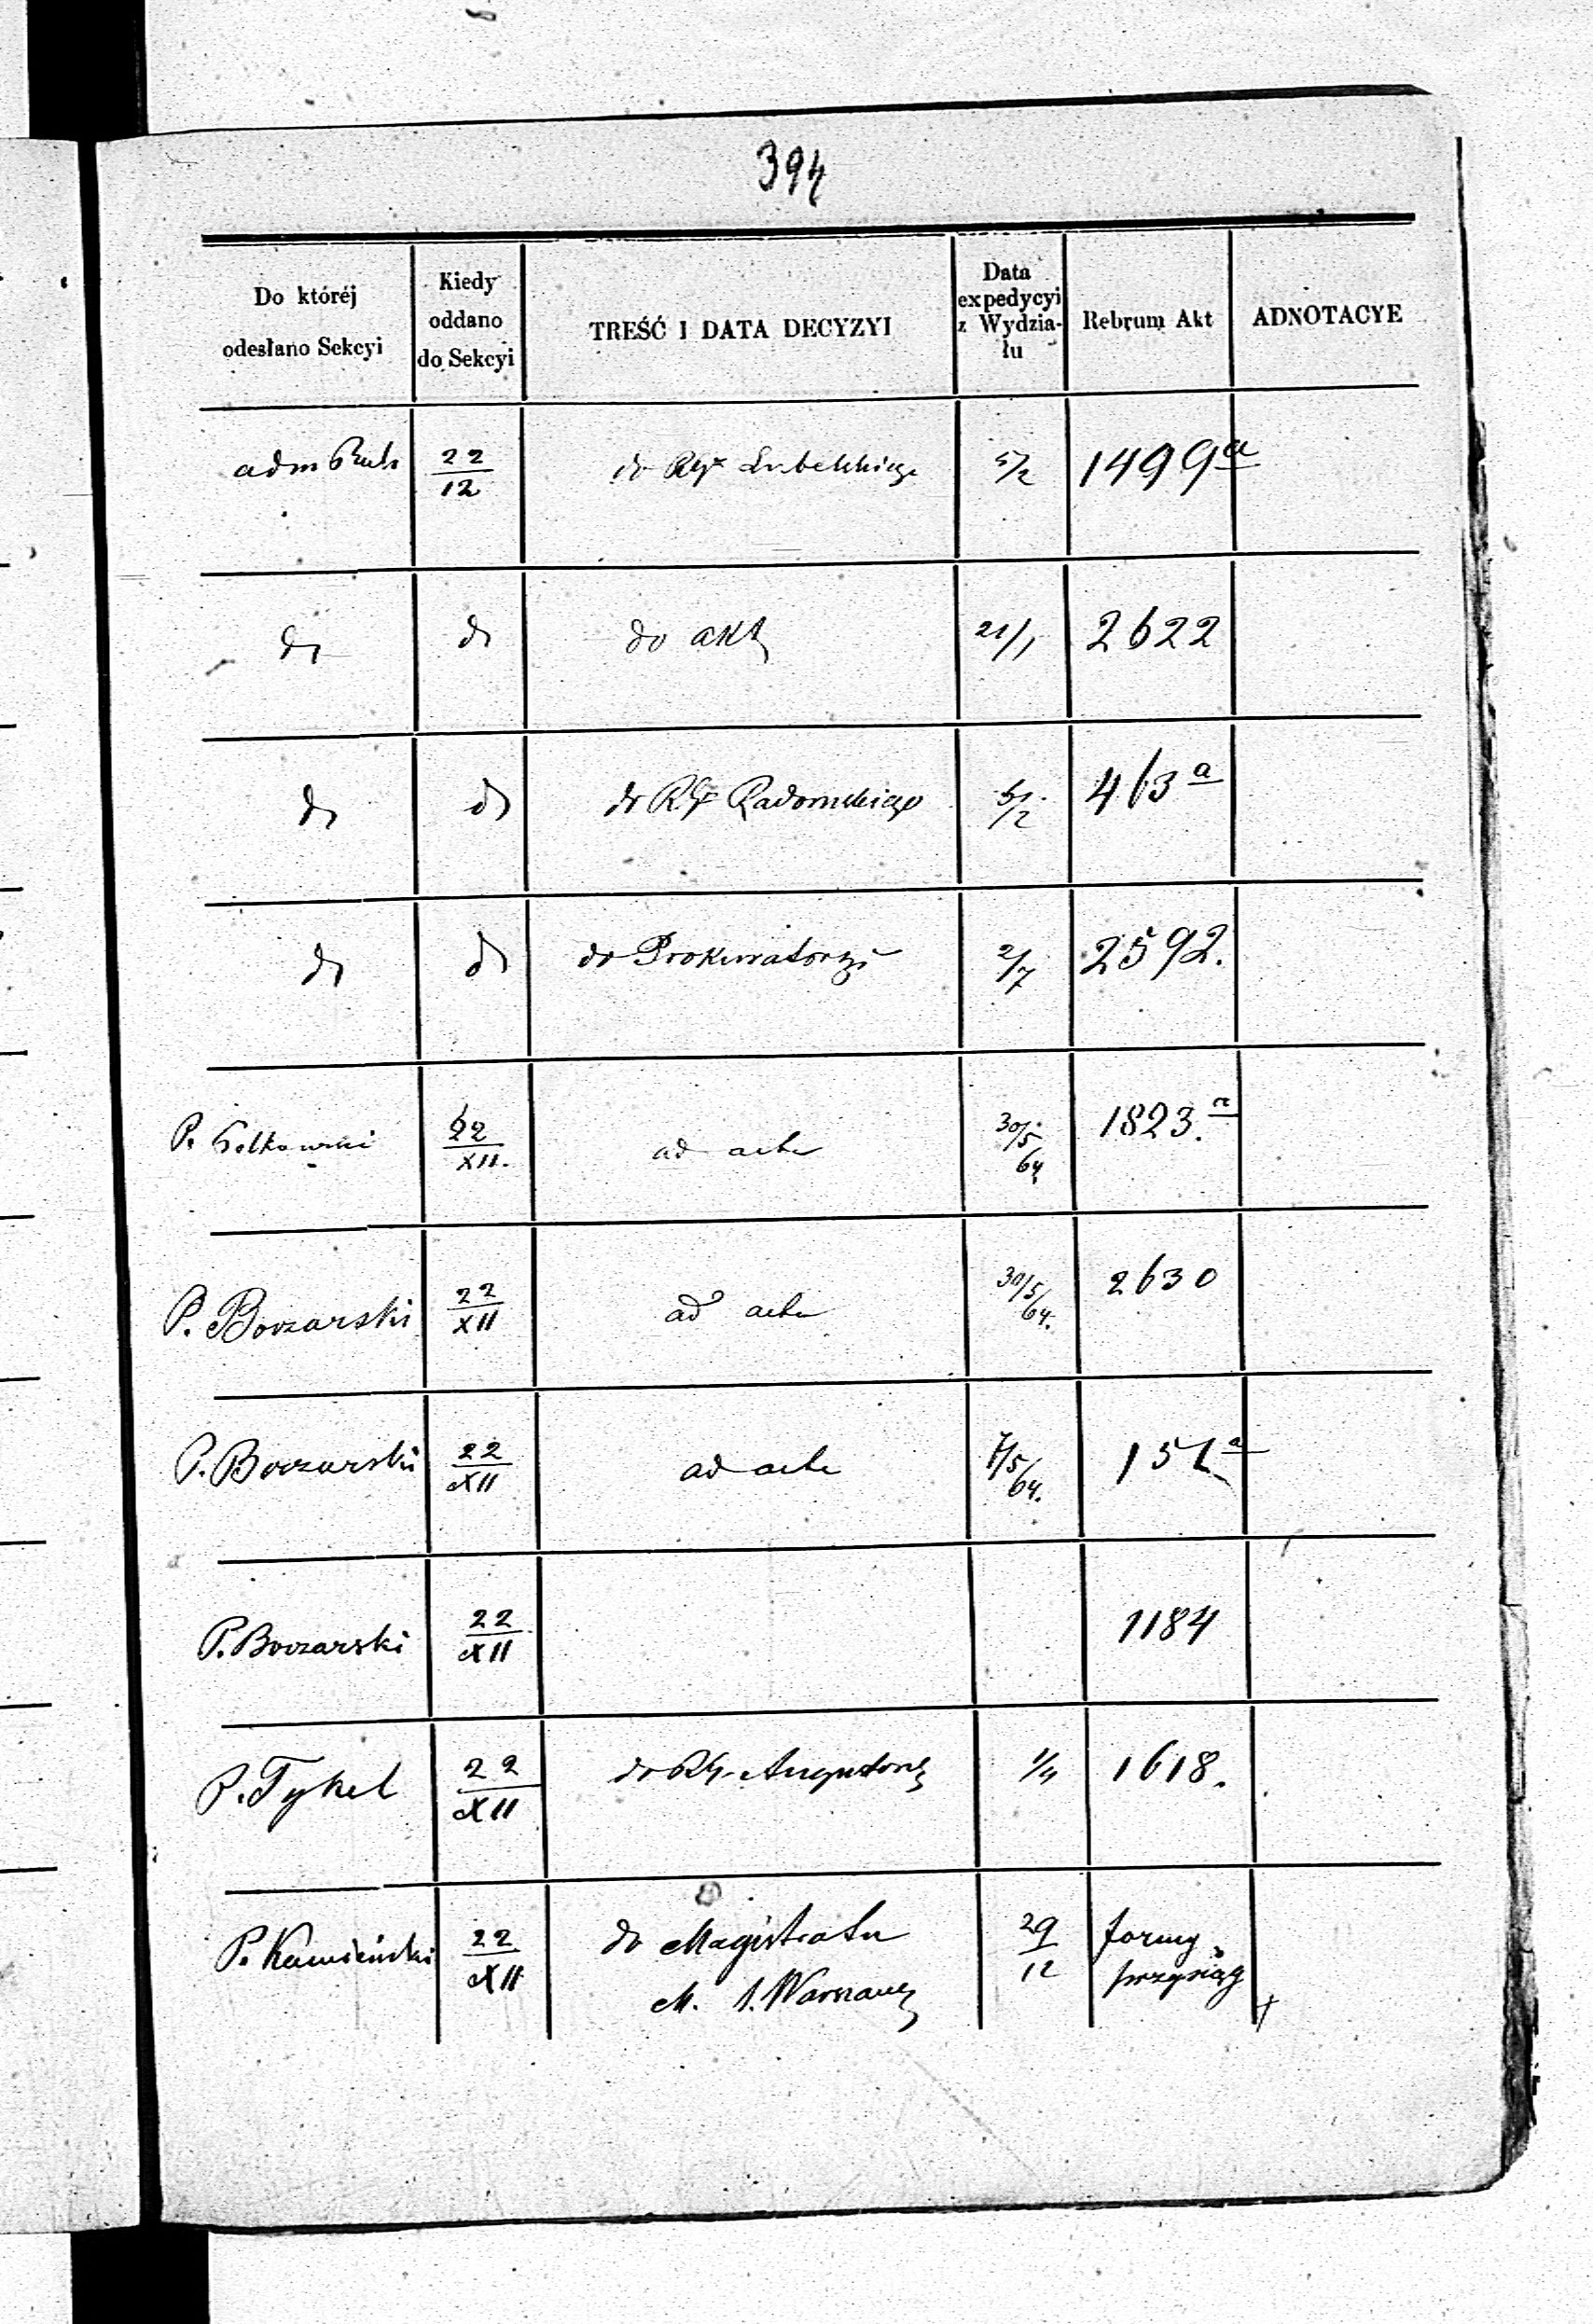 394
Do któréj odesłano Sekcyi
Kiedy oddano do Sekcyi
TREŚĆ I DATA DECYZYI
Data expedycyi z Wydzia-łu
Rebrum Akt
ADNOTACYE
adm 22/12 do Rząd Lubelskiego 5/2 1499a
do do do akt 21/1 2622
do do do Rząd Radomskiego 5/2 463a
do do do Prokuratoryi 2/7 2592.
P. 22/XII. ad acta 30/5 64 1823.a
P. Boczarski 22/XII ad acta 30/5/64. 2630
P. Boczarski 22/XII ad acta 7/5/64. 151a
P. Boczarski 22/XII 1184
P. Tykel 22/XII do 1/4 1618.
P. Kamieński 22/XII do Magistratu 29/12 formy
M. S. Warszawy przysiąg